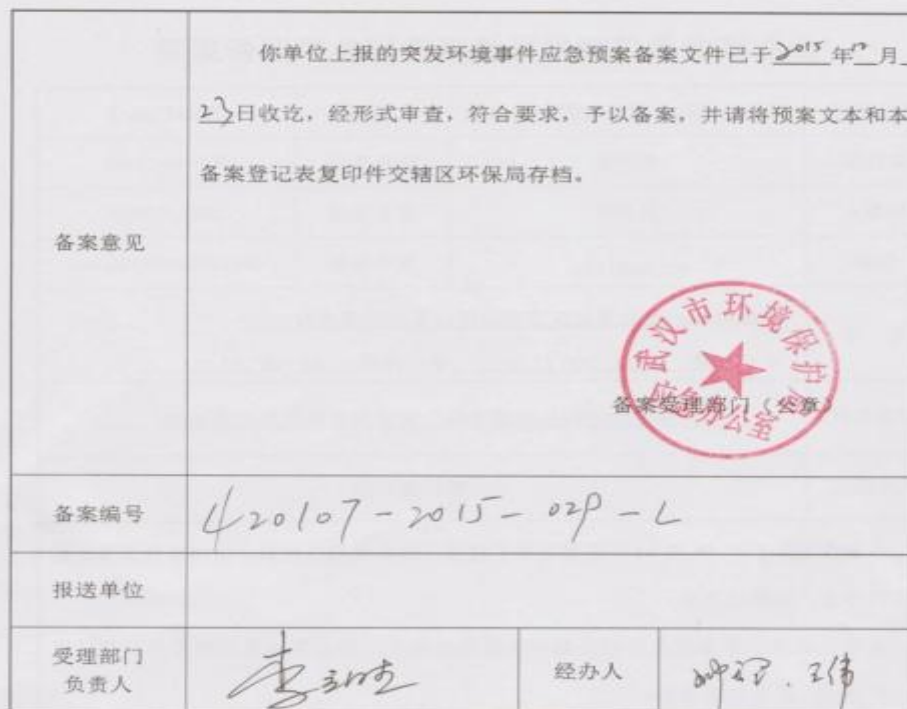 你单位上报的突发环境事件应急预案备案文件已于2015年10月
23日收讫，经形式审查，符合要求，予以备案，并请将预案文本和本
备案登记表复印件交辖区环保局存档。
备案意见
武汉市环境保护局
备案受理部门（公章）
应急办公室
备案编号
420107-2015-029-L
报送单位
受理部门
负责人
经办人
王伟